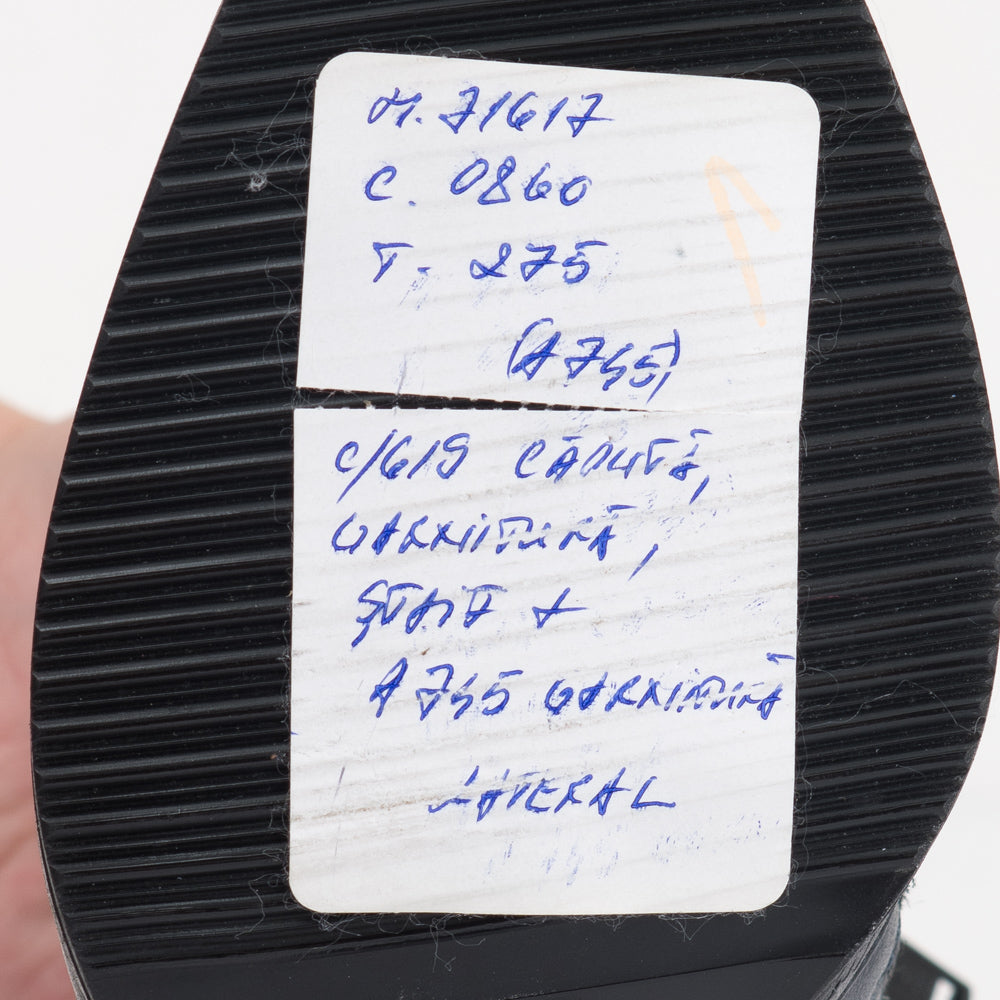 M. 71617
C. 0860
T. 275
(A745)
C/619 CĂPUTĂ,
GARNITURĂ,
ȘTAIF +
A745 GARNITURĂ
LATERAL